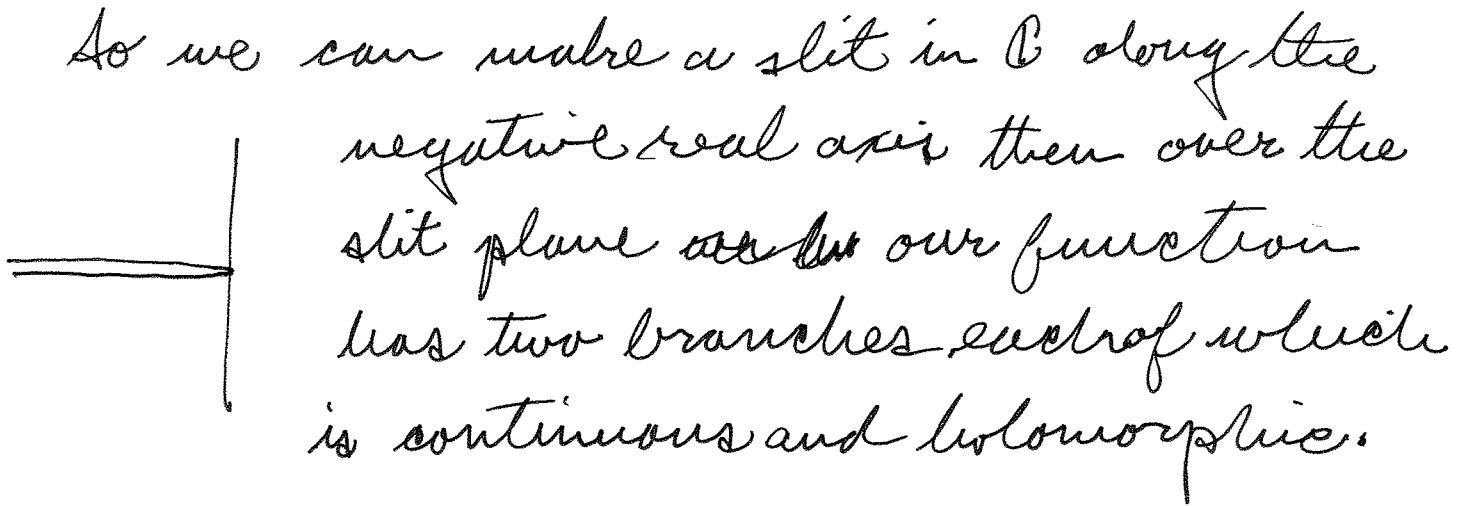 So we can make a slit in ℂ along the
negative real axis then over the
slit plane our function
has two branches each of which
is continuous and holomorphic.